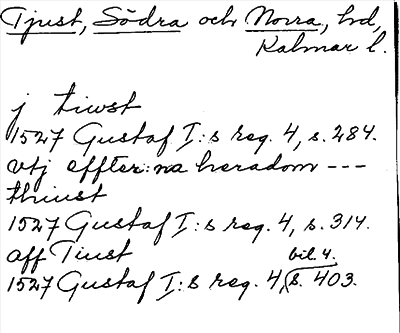 Tjust, Södra och Norra, hd,
Kalmar l.
j tiwst
1527 Gustaf I:s reg. 4, s. 284.
vtj effter:na heradom ---
thiust
1527 Gustaf I:s reg. 4, s. 314.
aff Tiust
bil. 4.
1527 Gustaf I:s reg. 4, s. 403.